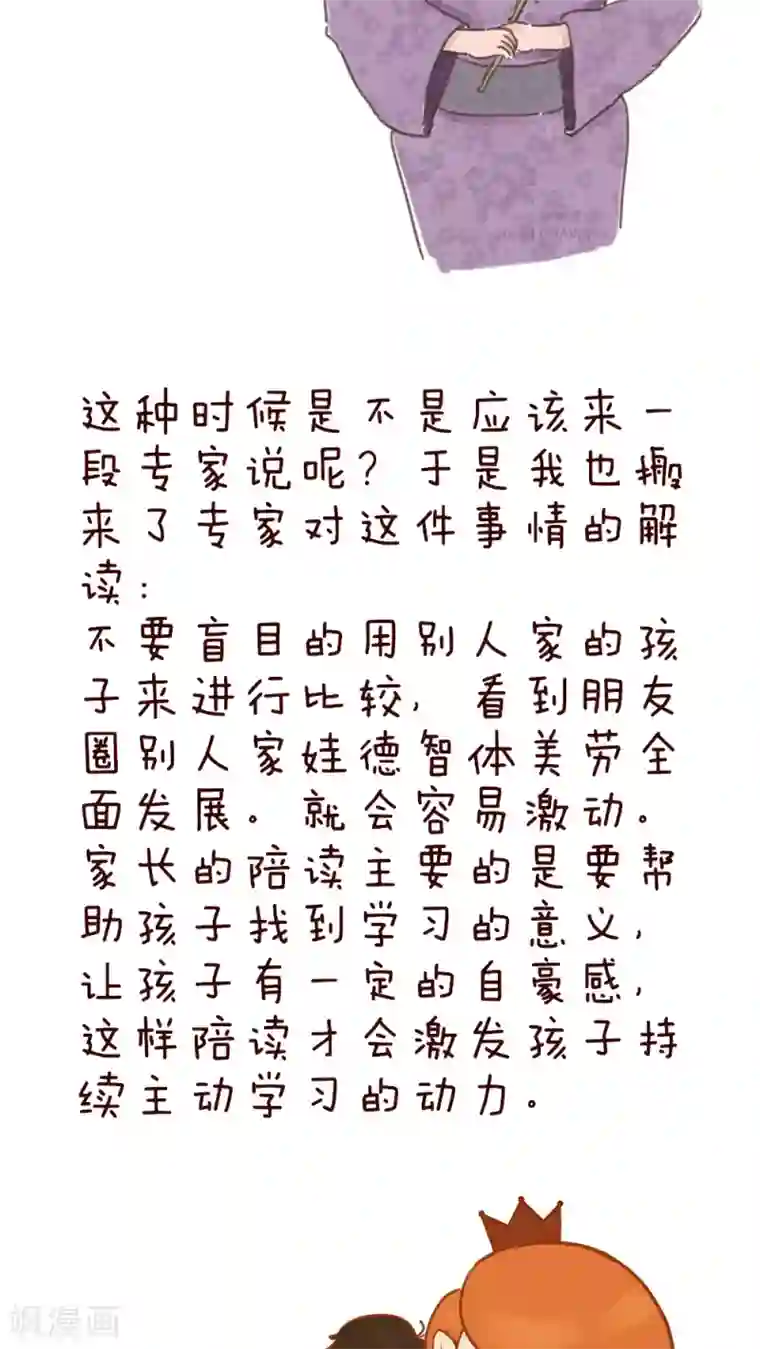 这种时候是不是应该来一
段专家说呢？于是我也搬
来了专家对这件事情的解
读：
不要盲目的用别人家的孩
子来进行比较，看到朋友
圈别人家娃德智体美劳全
面发展。就会容易激动。
家长的陪读主要的是要帮
助孩子找到学习的意义，
让孩子有一定的自豪感，
这样陪读才会激发孩子持
续主动学习的动力。
飒漫画